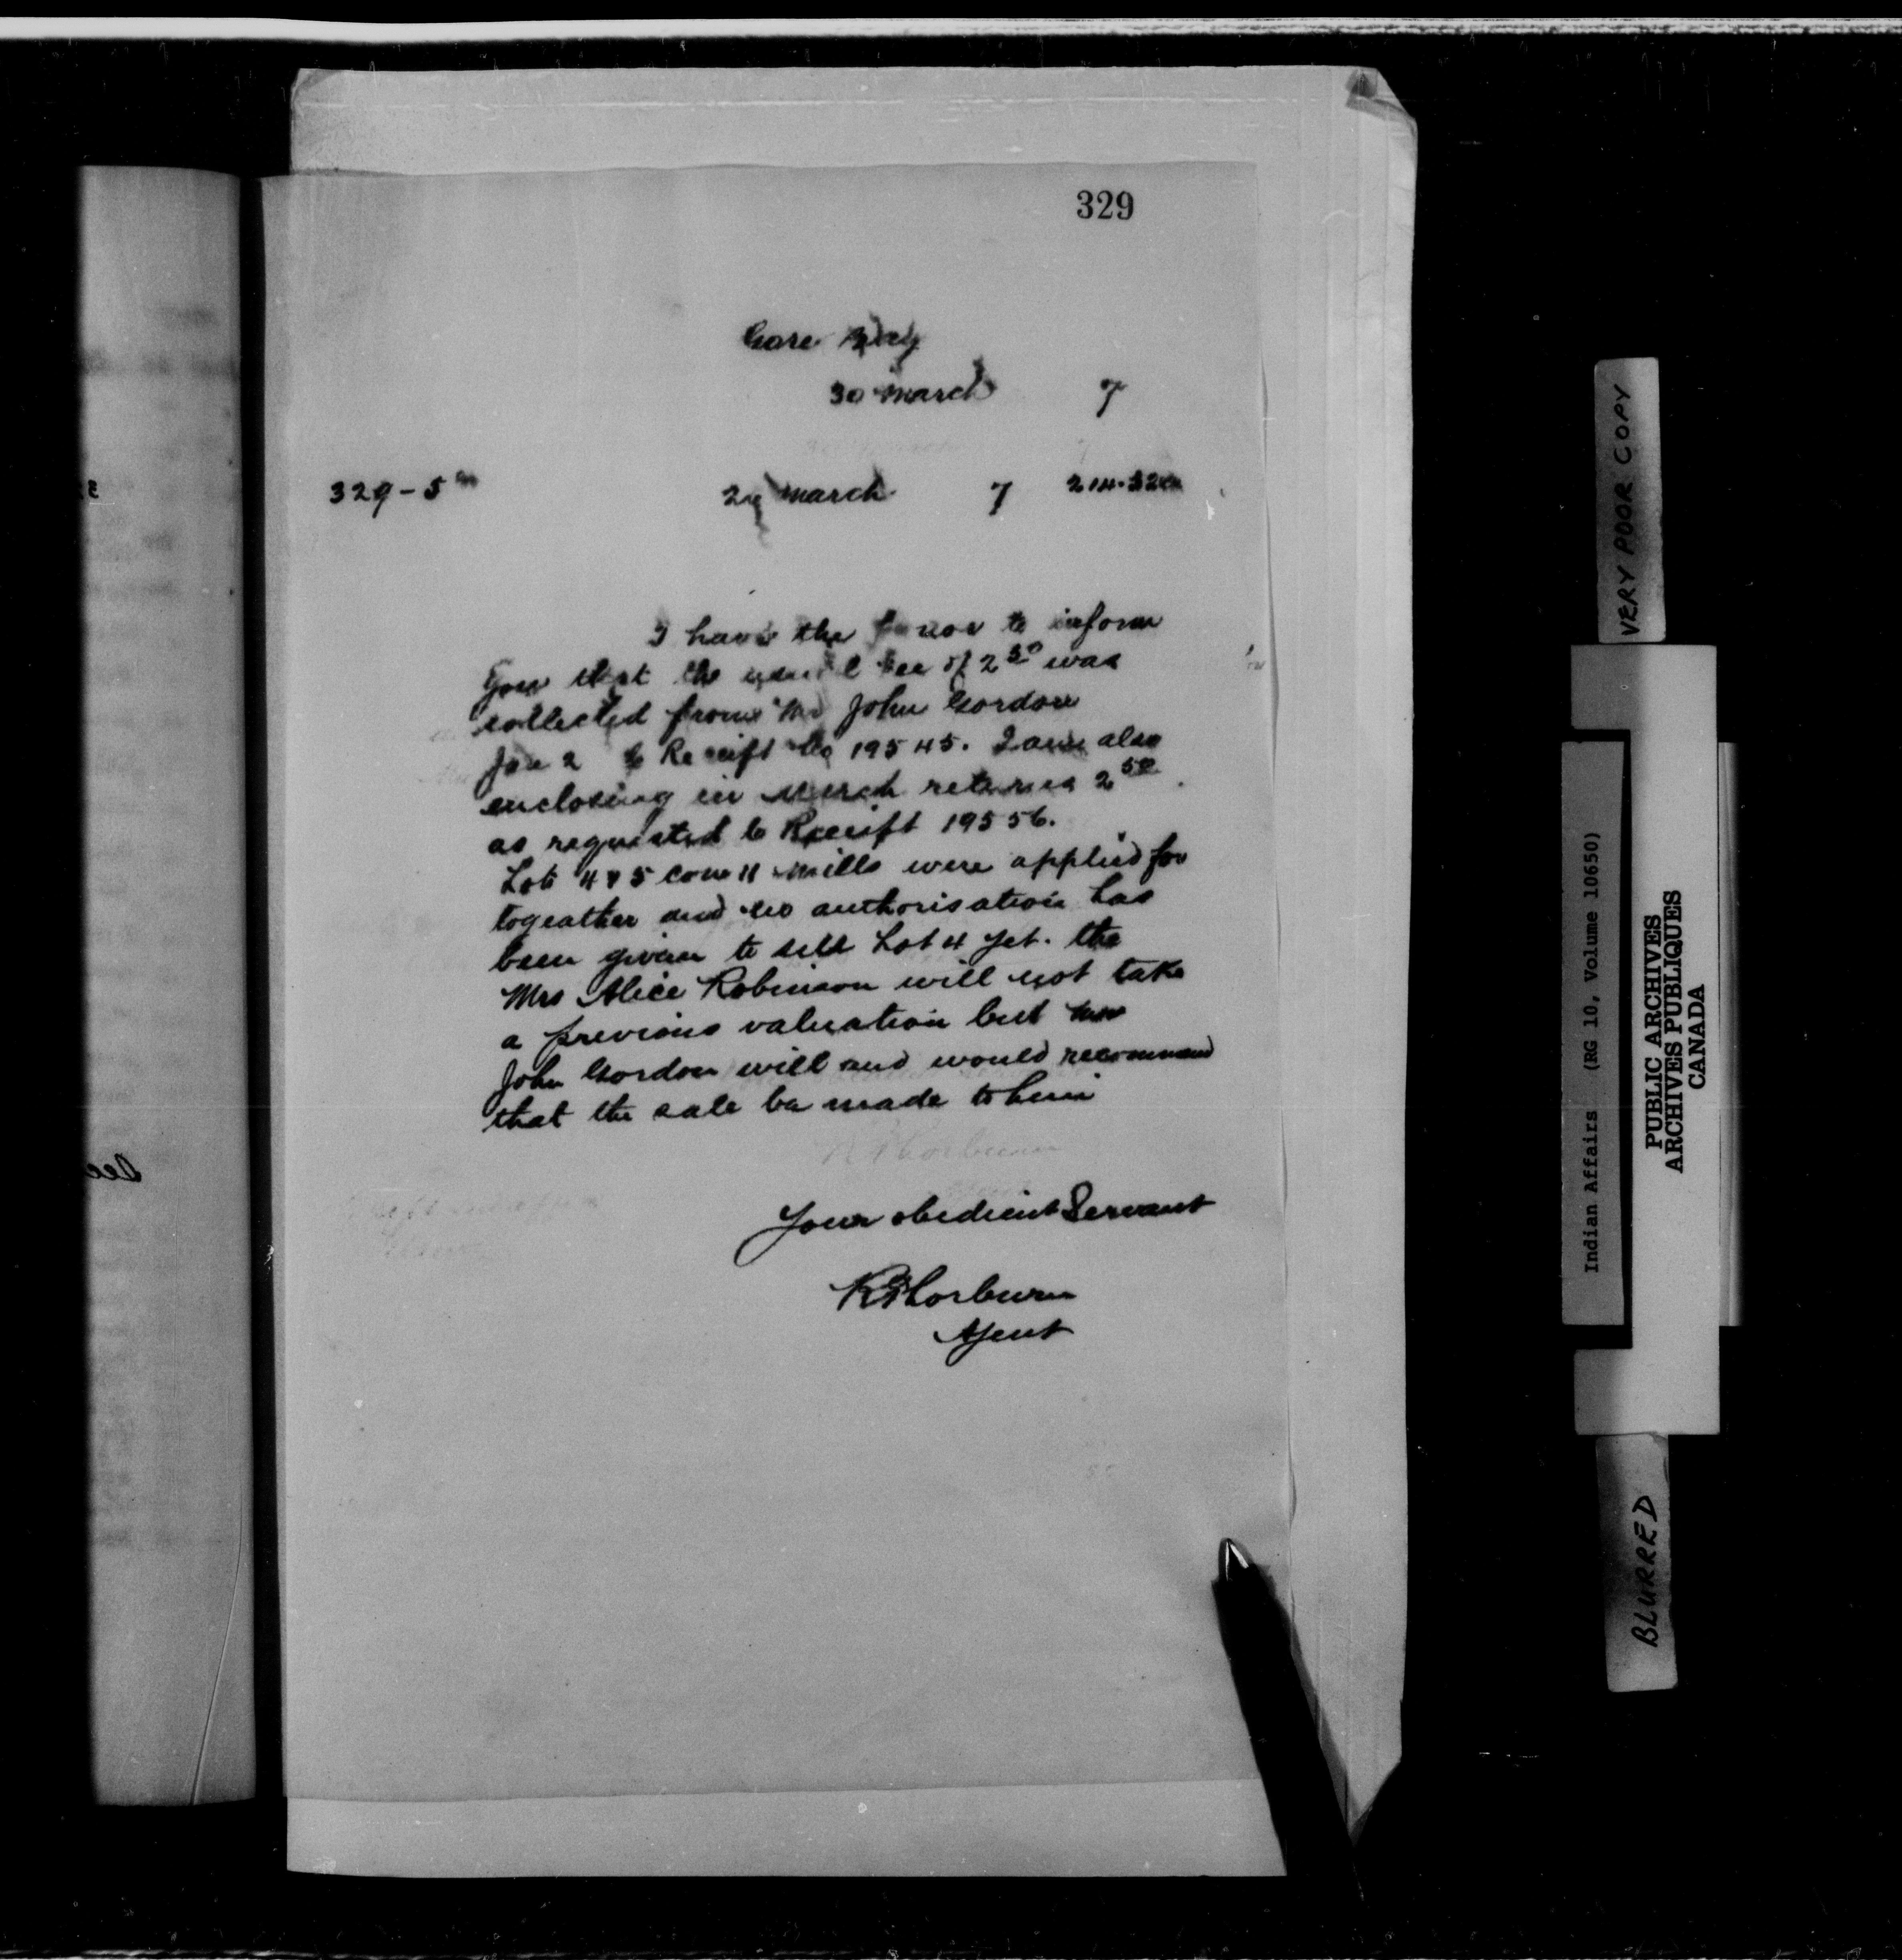 329
Gore Bay
30 March 7
329-5
29 March 7 214.32
I have the honor to inform
you that the usual fee of 2 50 was
collected from Mr John Gordon
Jan 2 Receift No 19545. I am also
enclosing in March returns 2 50
as requested Receift 19556.
Lots 4 & 5 con 11 Mills were applied for
togeather and no authorisation has
been given to sell Lot 4 yet. the
Mrs Alice Robinson will not take
a previous valuation but
John Gordon will and would recommend
that the sale be made to him
Your obedient Servant
R Thorburn
Agent
VERY POOR COPY
Indian Affairs (RG 10, Volume 10650)
PUBLIC ARCHIVES
ARCHIVES PUBLIQUES
CANADA
BLURRED